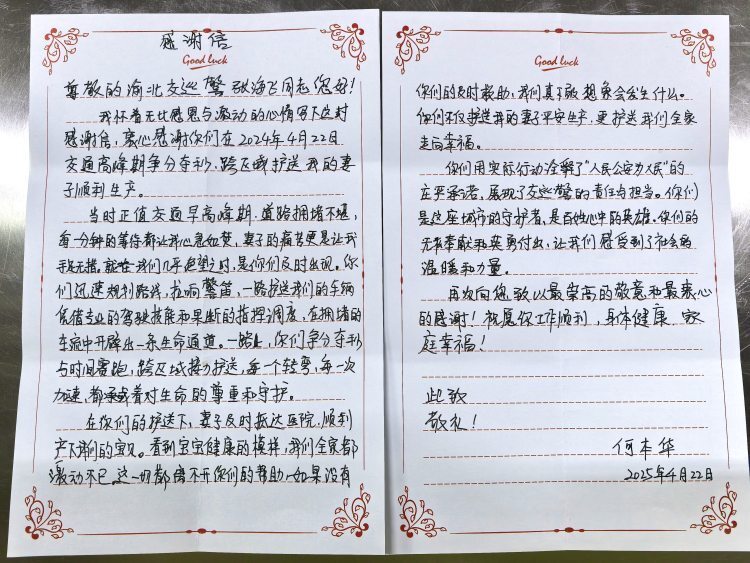 感谢信
Good luck
尊敬的渝北交巡警张海飞同志您好！
我怀着无比感恩与激动的心情写下这封
感谢信，衷心感谢你们在2024年4月22日
交通高峰期争分夺秒，跨区域护送我的妻
子顺利生产。
当时正值交通早高峰期，道路拥堵不堪，
每一分钟的等待都让我心急如焚，妻子的痛苦更是让我
手足无措，就在我们几乎绝望之时，是你们及时出现。你
们迅速规划路线，拉响警笛，一路护送我们的车辆
凭借专业的驾驶技能和果断的指挥调度，在拥堵的
车流中开辟出一条生命通道。一路上，你们争分夺秒
与时间赛跑，跨区域接力护送，每一个转弯，每一次
加速，都承载着对生命的尊重和守护。
在你们的护送下，妻子及时抵达医院，顺利
产下我们的宝贝。看到宝宝健康的模样，我们全家都
激动不已。这一切都离不开你们的帮助，如果没有
Good luck
你们的及时救助，我们真不敢想象会发生什么。
你们不仅护送我的妻子平安生产，更护送我们全家
走向幸福。
你们用实际行动诠释了“人民公安为人民”的
庄严承诺，展现了交巡警的责任与担当。你们
是这座城市的守护者，是百姓心中的英雄，你们的
无私奉献和英勇付出，让我们感受到了社会的
温暖和力量。
再次向您致以最崇高的敬意和最衷心
的感谢！祝愿你工作顺利，身体健康，家
庭幸福！
此致
敬礼！
何本华
2025年4月22日